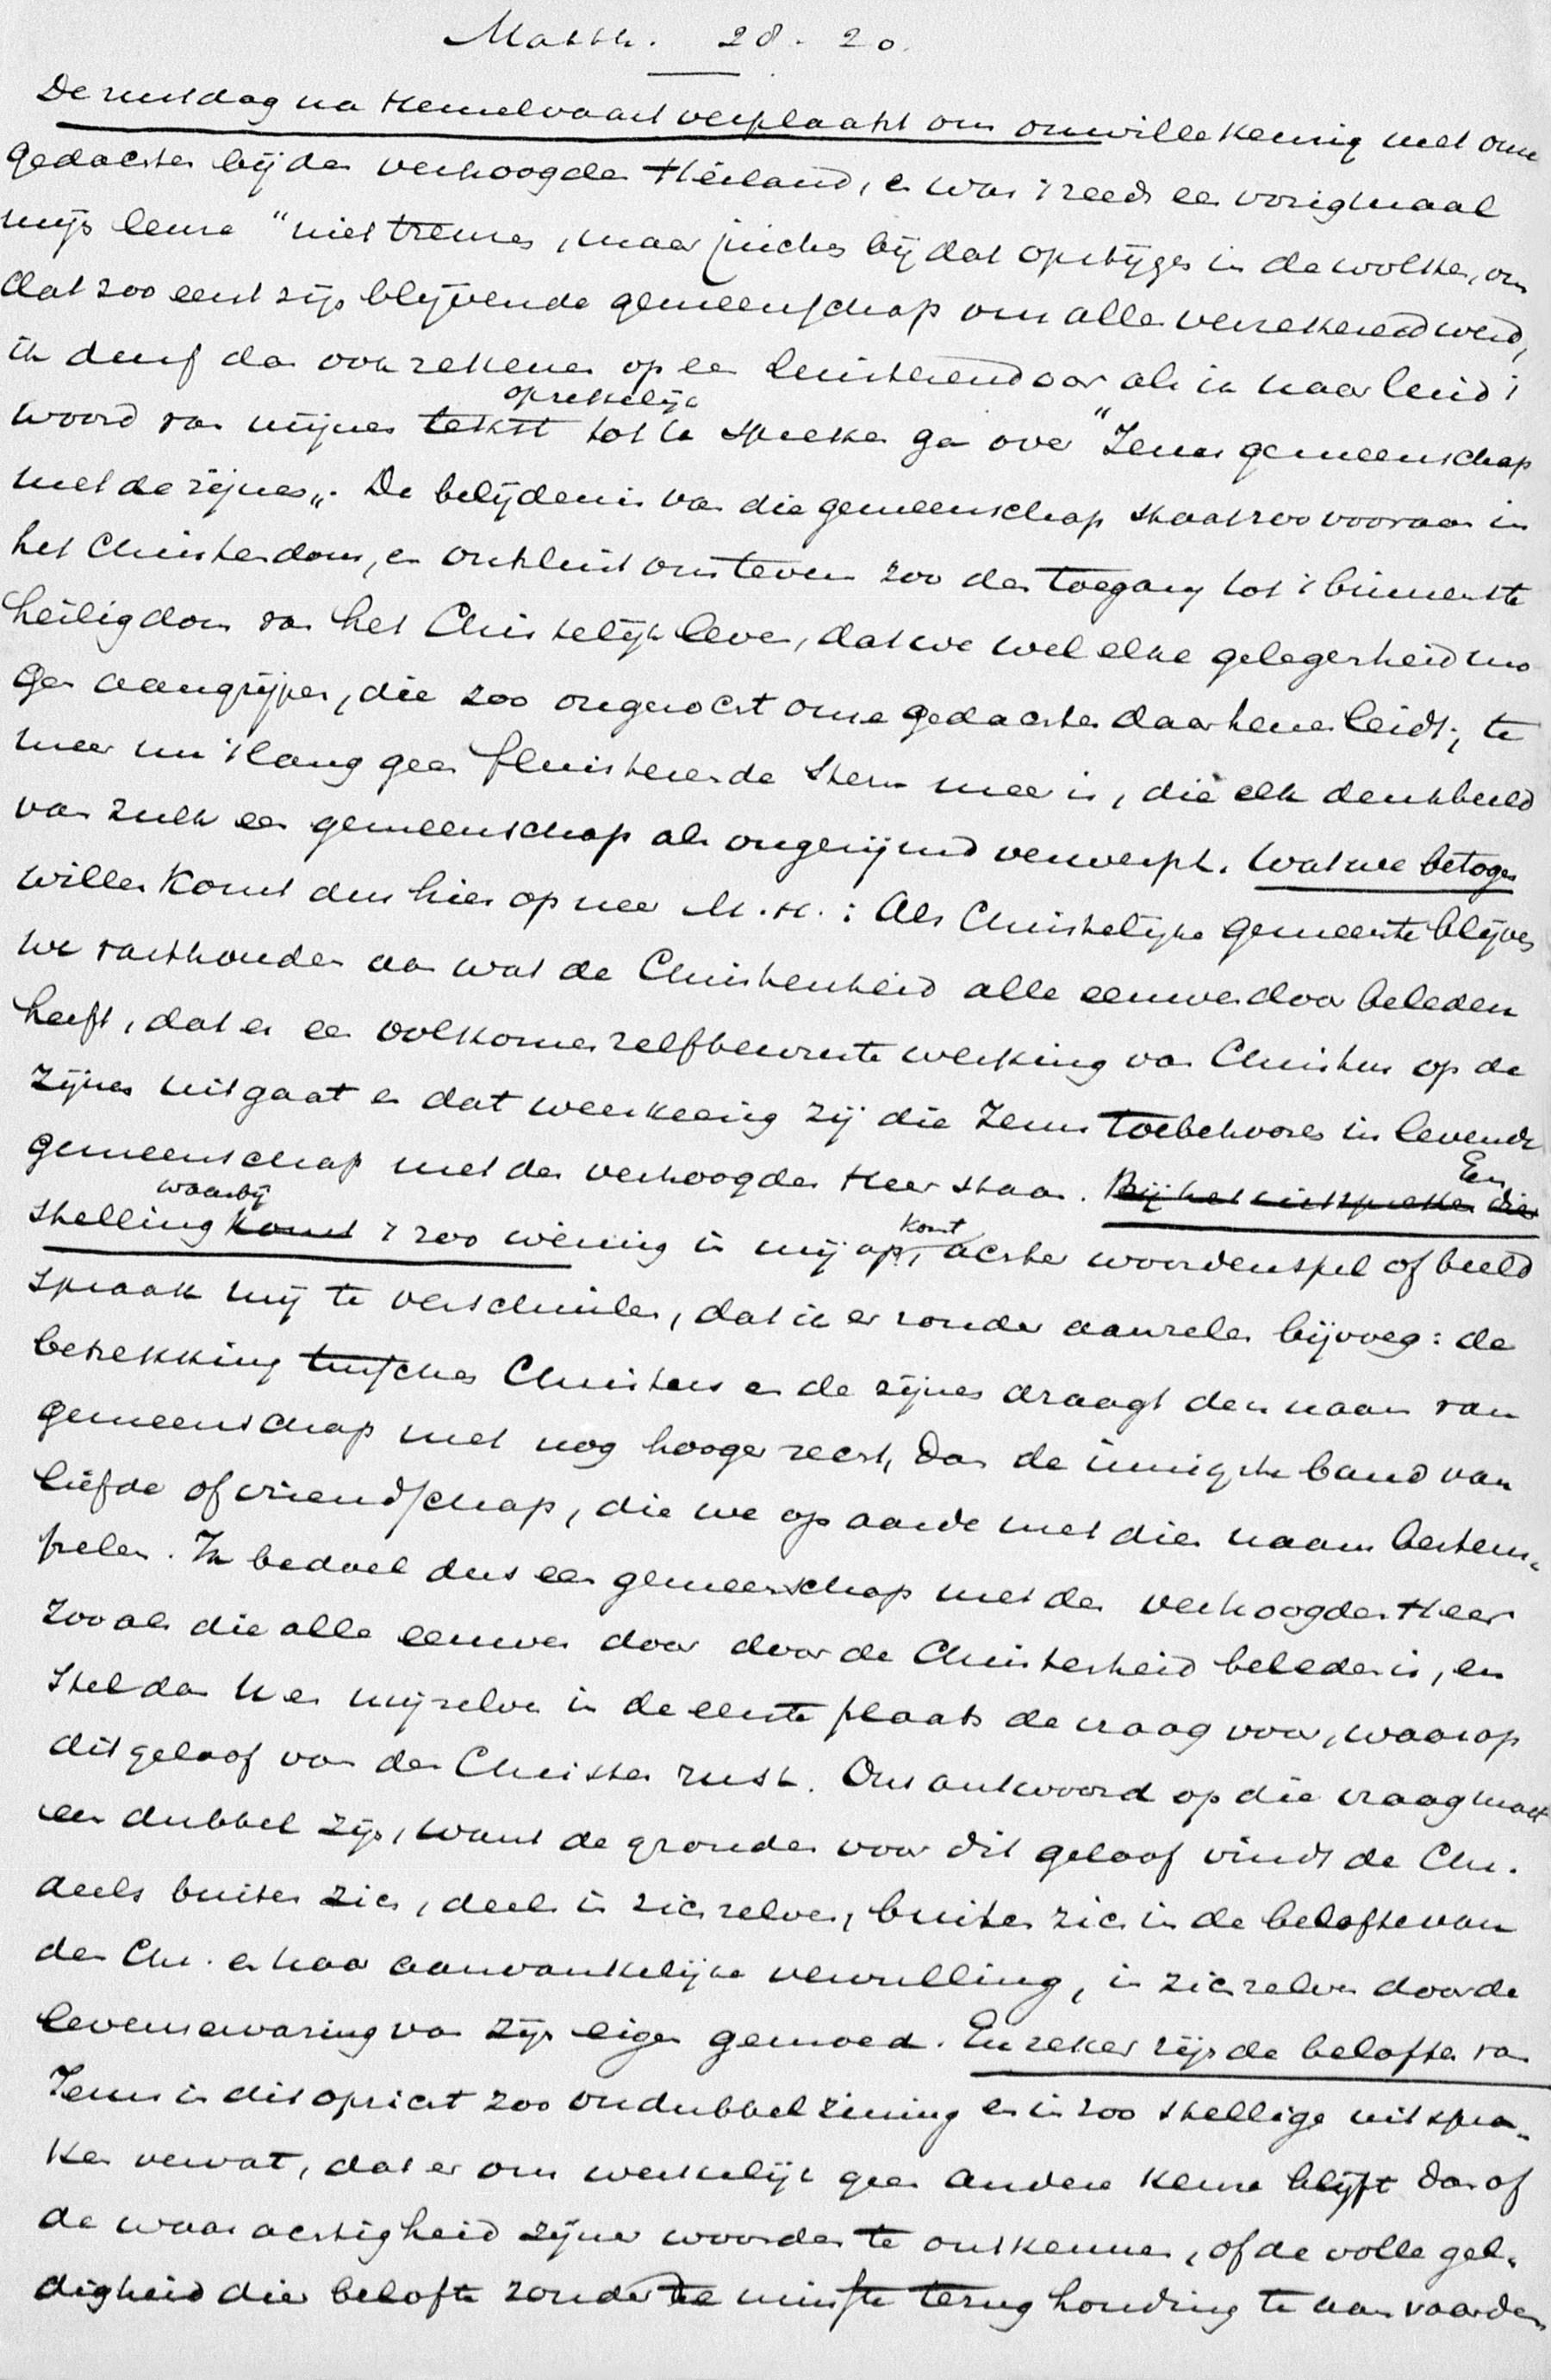 Matth. 28. 20.
De rustdag na Hemelvaart verplaatst ons onwillekeurig met onze
gedachten bij den verhoogden Heiland, en was 't reeds een vorigmaal
mijn leuze "niet treuren, maar juichen bij dat opstijgen in de wolken, om
dat zoo eerst zijn blijvende gemeenschap ons allen verzekerd werd,
ik durf dan ook rekenen op een luisterend oor als ik naar luid 't
woord van mijnen tekst opzettelijk tot U spreken ga over "Jezus gemeenschap
met de zijnen„. De belijdenis van die gemeenschap staat zoo vooraan in
het Christendom, en ontsluit ons tevens zoo den toegang tot 't binnenste
heiligdom van het Christelijk leven, dat we wel elke gelegenheid mo
gen aangrijpen, die zoo ongezocht onze gedachten daarhenen leidt, te
meer nu 't lang geen fluisterende stem meer is, die elk denkbeeld
van zulk een gemeenschap als ongerijmd verwerpt. Wat we betogen
willen komt dus hier op neer M.H.: Als Christelijke gemeente blijven
we vasthouden aan wat de Christenheid alle eeuwen door beleden
heeft, dat er een volkomen zelfbewuste werking van Christus op de
zijnen uitgaat en dat weerkeerig zij die Jezus toebehooren in levende
gemeenschap met den verhoogden Heer staan. Bij het uitspreken dier En
stelling komt waarbij 't zoo weinig in mij op komt, achter woordenspel of beeld
spraak mij te verschuilen, dat ik er zonder aarzelen bijvoeg: de
betrekking tusschen Christus en de zijnen draagt den naam van
gemeenschap met nog hooger recht, dan de innigste band van
liefde of vriendschap, die we op aarde met dien naam bestem„
pelen. Ik bedoel dus een gemeenschap met den verhoogden Heer
zooals die alle eeuwen door door de Christenheid beleden is, en
stel dan U en mijzelven in de eerste plaats de vraag voor, waarop
dit geloof van den Christen rust. Ons antwoord op die vraag moet
een dubbel zijn, want de gronden voor dit geloof vindt de Chr.
deels buiten zich, deels in zichzelven, buiten zich in de belofte van
den Chr. en haar aanvankelijke vervulling, in zichzelven door de
levenservaring van zijn eigen gemoed. En zeker zijn de beloften van
Jezus in dit opzicht zoo ondubbelzinnig en in zoo stellige uitspra„
ken vervat, dat er ons werkelijk geen andere keuze blijft dan of
de waarachtigheid zijner woorden te ontkennen, of de volle gel„
digheid dier belofte zonder de minste terughouding te aanvaarden